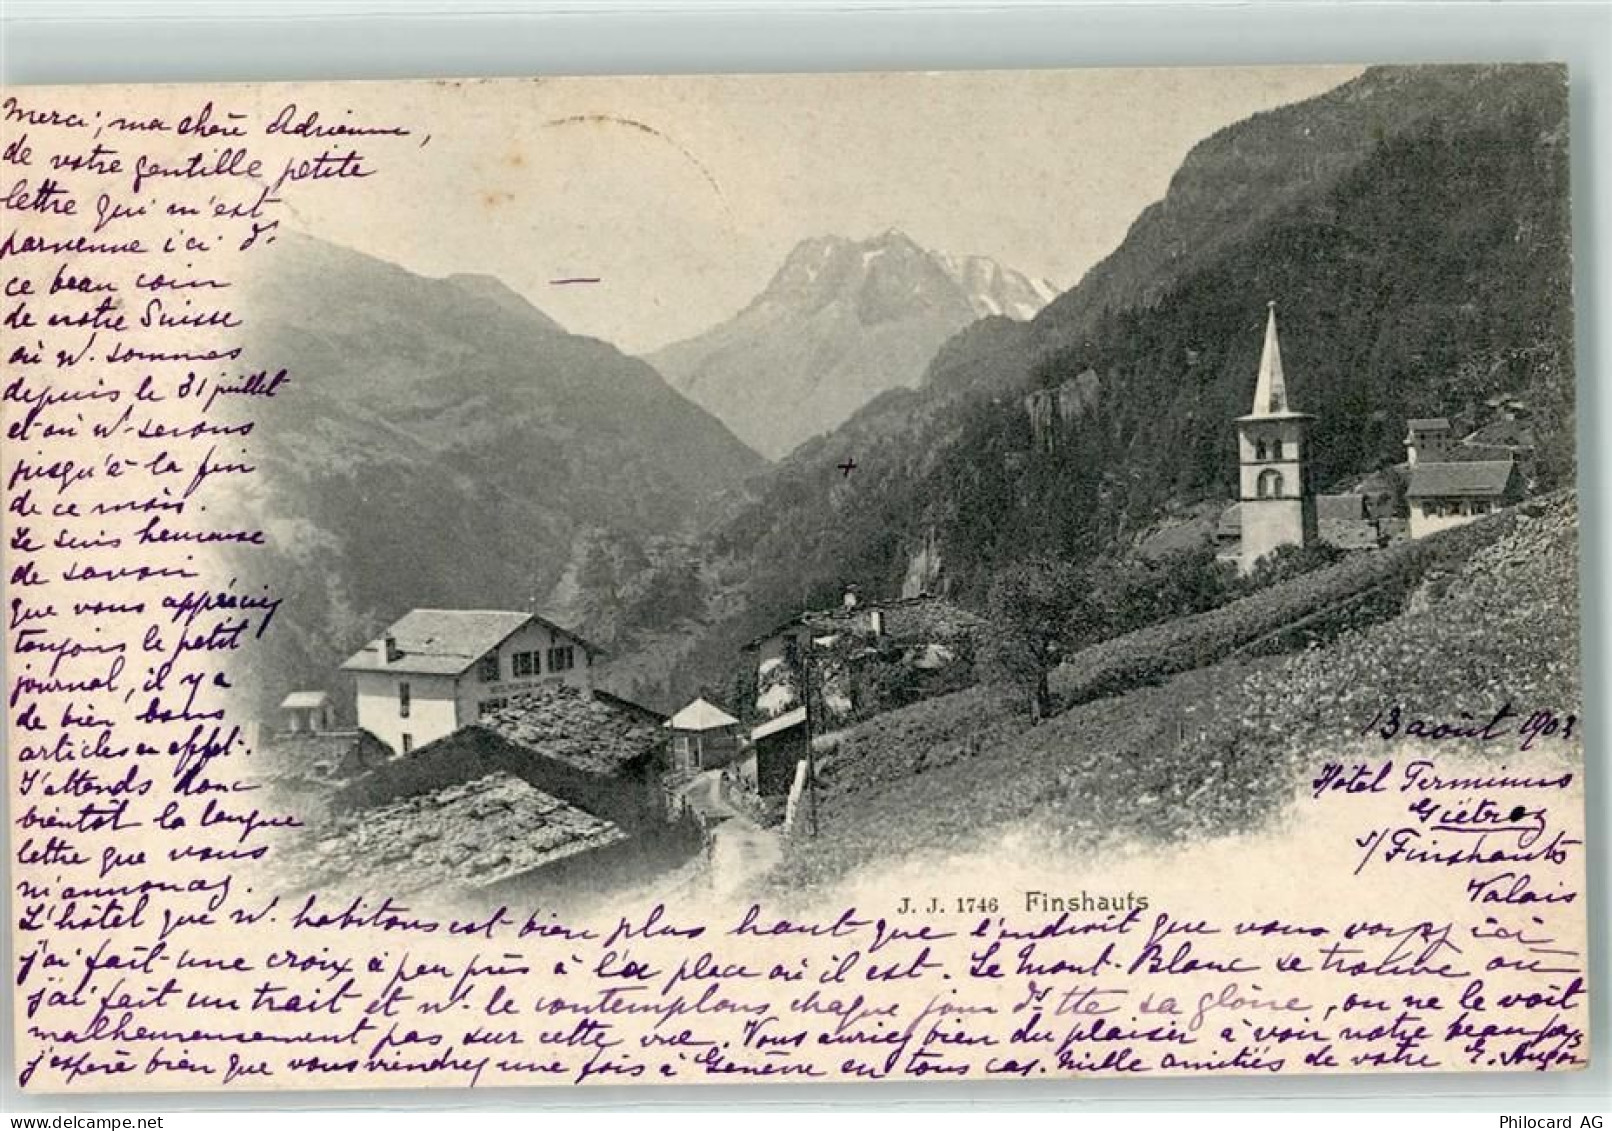 Merci, ma chère Adrienne,
de votre gentille petite
lettre qui m'est
parvenue ici ds
ce beau coin
de notre Suisse
où n. sommes
depuis le 31 juillet
et où n. serons
jusqu'à la fin
de ce mois.
Je suis heureuse
de savoir
que vous appréciez
toujours le petit
journal, il y a
de bien bons
articles en effet.
J'attends donc
bientôt la longue
lettre que vous
m'annoncez.
L'hôtel que n. habitons est bien plus haut que l'endroit que vous voyez ici
j'ai fait une croix à peu près à la place où il est. Le Mont-Blanc se trouve où
j'ai fait un trait et n. le contemplons chaque jour ds tte sa gloire, on ne le voit
malheureusement pas sur cette vue. Vous auriez bien du plaisir à voir notre beau pays
j'espère bien que vous viendrez une fois à Genève en tous cas. Mille amitiés de votre E.
13 août 1903
Hôtel Terminus
Giétroz
s/Finshauts
Valais
J. J. 1746 Finshauts
delcampe.net
Philocard AG